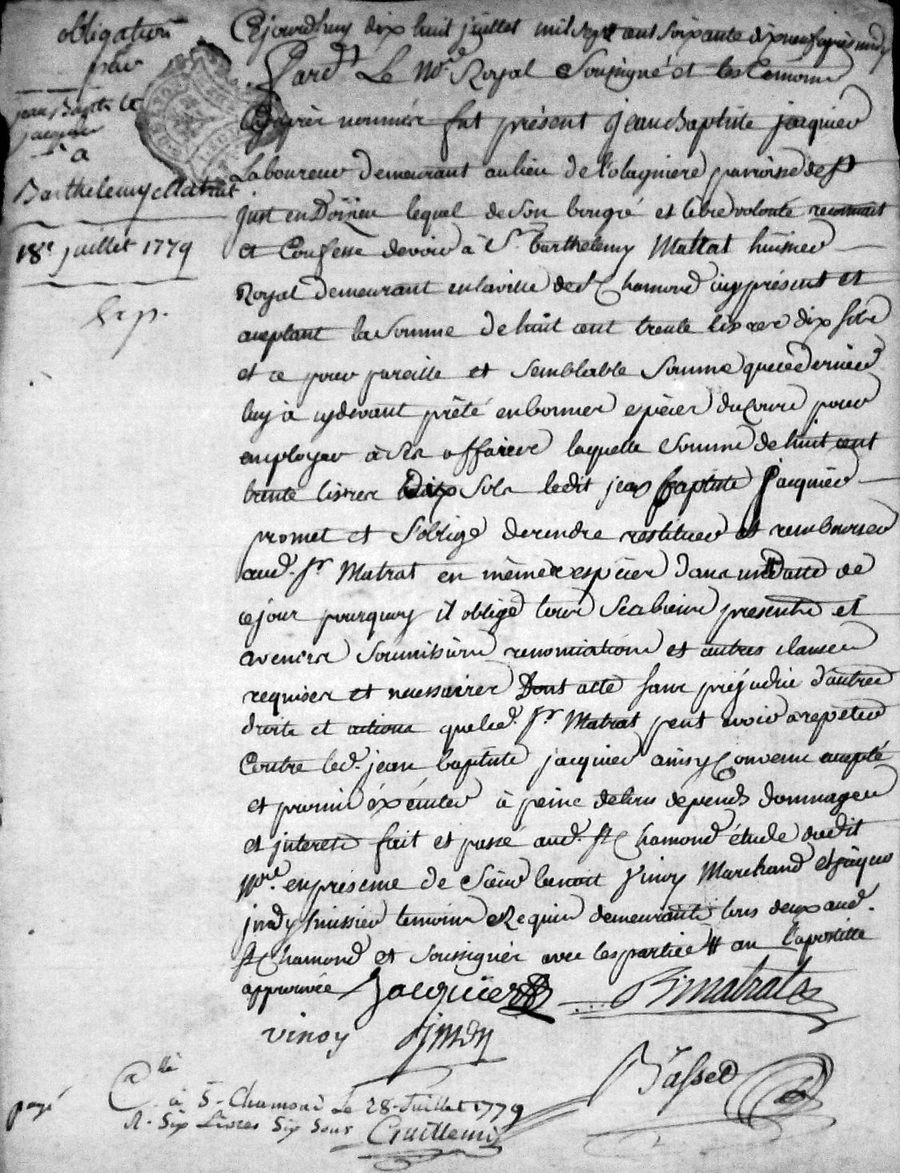 obligation
par
jean Bapte
jacquier
a
Barthelemy Matrat
18e juillet 1779
Cejourdhuy dix huit juillet mil sept cent soixante dix neuf apres midy
Pardt Le Nre Royal Soussigné et les temoins
cy apres nommés fut présent jean baptiste jacquier
Laboureur demeurant au lieu de parroisse de St
just en Doizieu lequel de son bongré et libre volonté reconnait
et Confesse devoir à Sr barthelemy Mattat huissier
Royal demeurant en la ville de St Chamond icy présent et
aceptant la somme de huit cent trente livres dix sols
et ce pour pareille et semblable somme que ce dernier
luy à cydevant prêté en bonnes espèces du cours pour
employer à ses affaires laquelle somme de huit cent
trente livres dix sols ledit jean baptiste jacquier
promet et s'oblige de rendre restituer et rembourser
aud. Sr Matrat en mêmes espèces dans un datte de
ce jour pourquoy il oblige tous ses biens presents et
avenirs soumissions renonciations et autres clauses
requises et necessaires Dont acte sans préjudice d'autres
droits et actions que led. Sr Matrat peut avoir a repeter
contre led. jean baptiste jacquier ainsy Convenu accepté
et promis éxécuter à peine de tous depends dommages
et interets fait et passé aud. St Chamond étude dudit
Nre en présence de Sieur benoit Vinoy Marchand et
huissier temoins Requis demeurants tous deux aud.
St Chamond et soussignés avec les parties # au l'apostille
approuvée Jacquier BMatrat
vinoy
Basset
Clle
payé
à St-Chamond Le 28. Juillet 1779
R. Six Livres Six Sous Guillemin